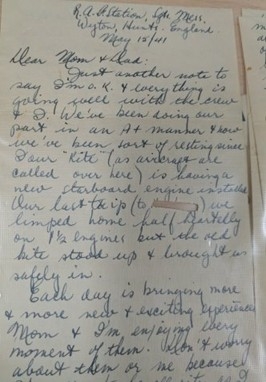 R.A.F. Station, Sgts Mess,
Wyton, Hunts. England
May 15/41
Dear Mom & Dad:
Just another note to
say I'm o.K. & everything is
going well with the crew
& I. We've been doing our
part in an A+ manner & now
we've been sort of resting since
our "Kite" (as aircraft are
called over here) is having a
new starboard engine installed
Our last trip (to ) we
limped home half heartedly
on 1½ engines but the old
kite stood up & brought us
safely in.
Each day is bringing more
& more new & exciting experiences
Mom & I'm enjoying every
moment of them. Don't worry
about them or me because